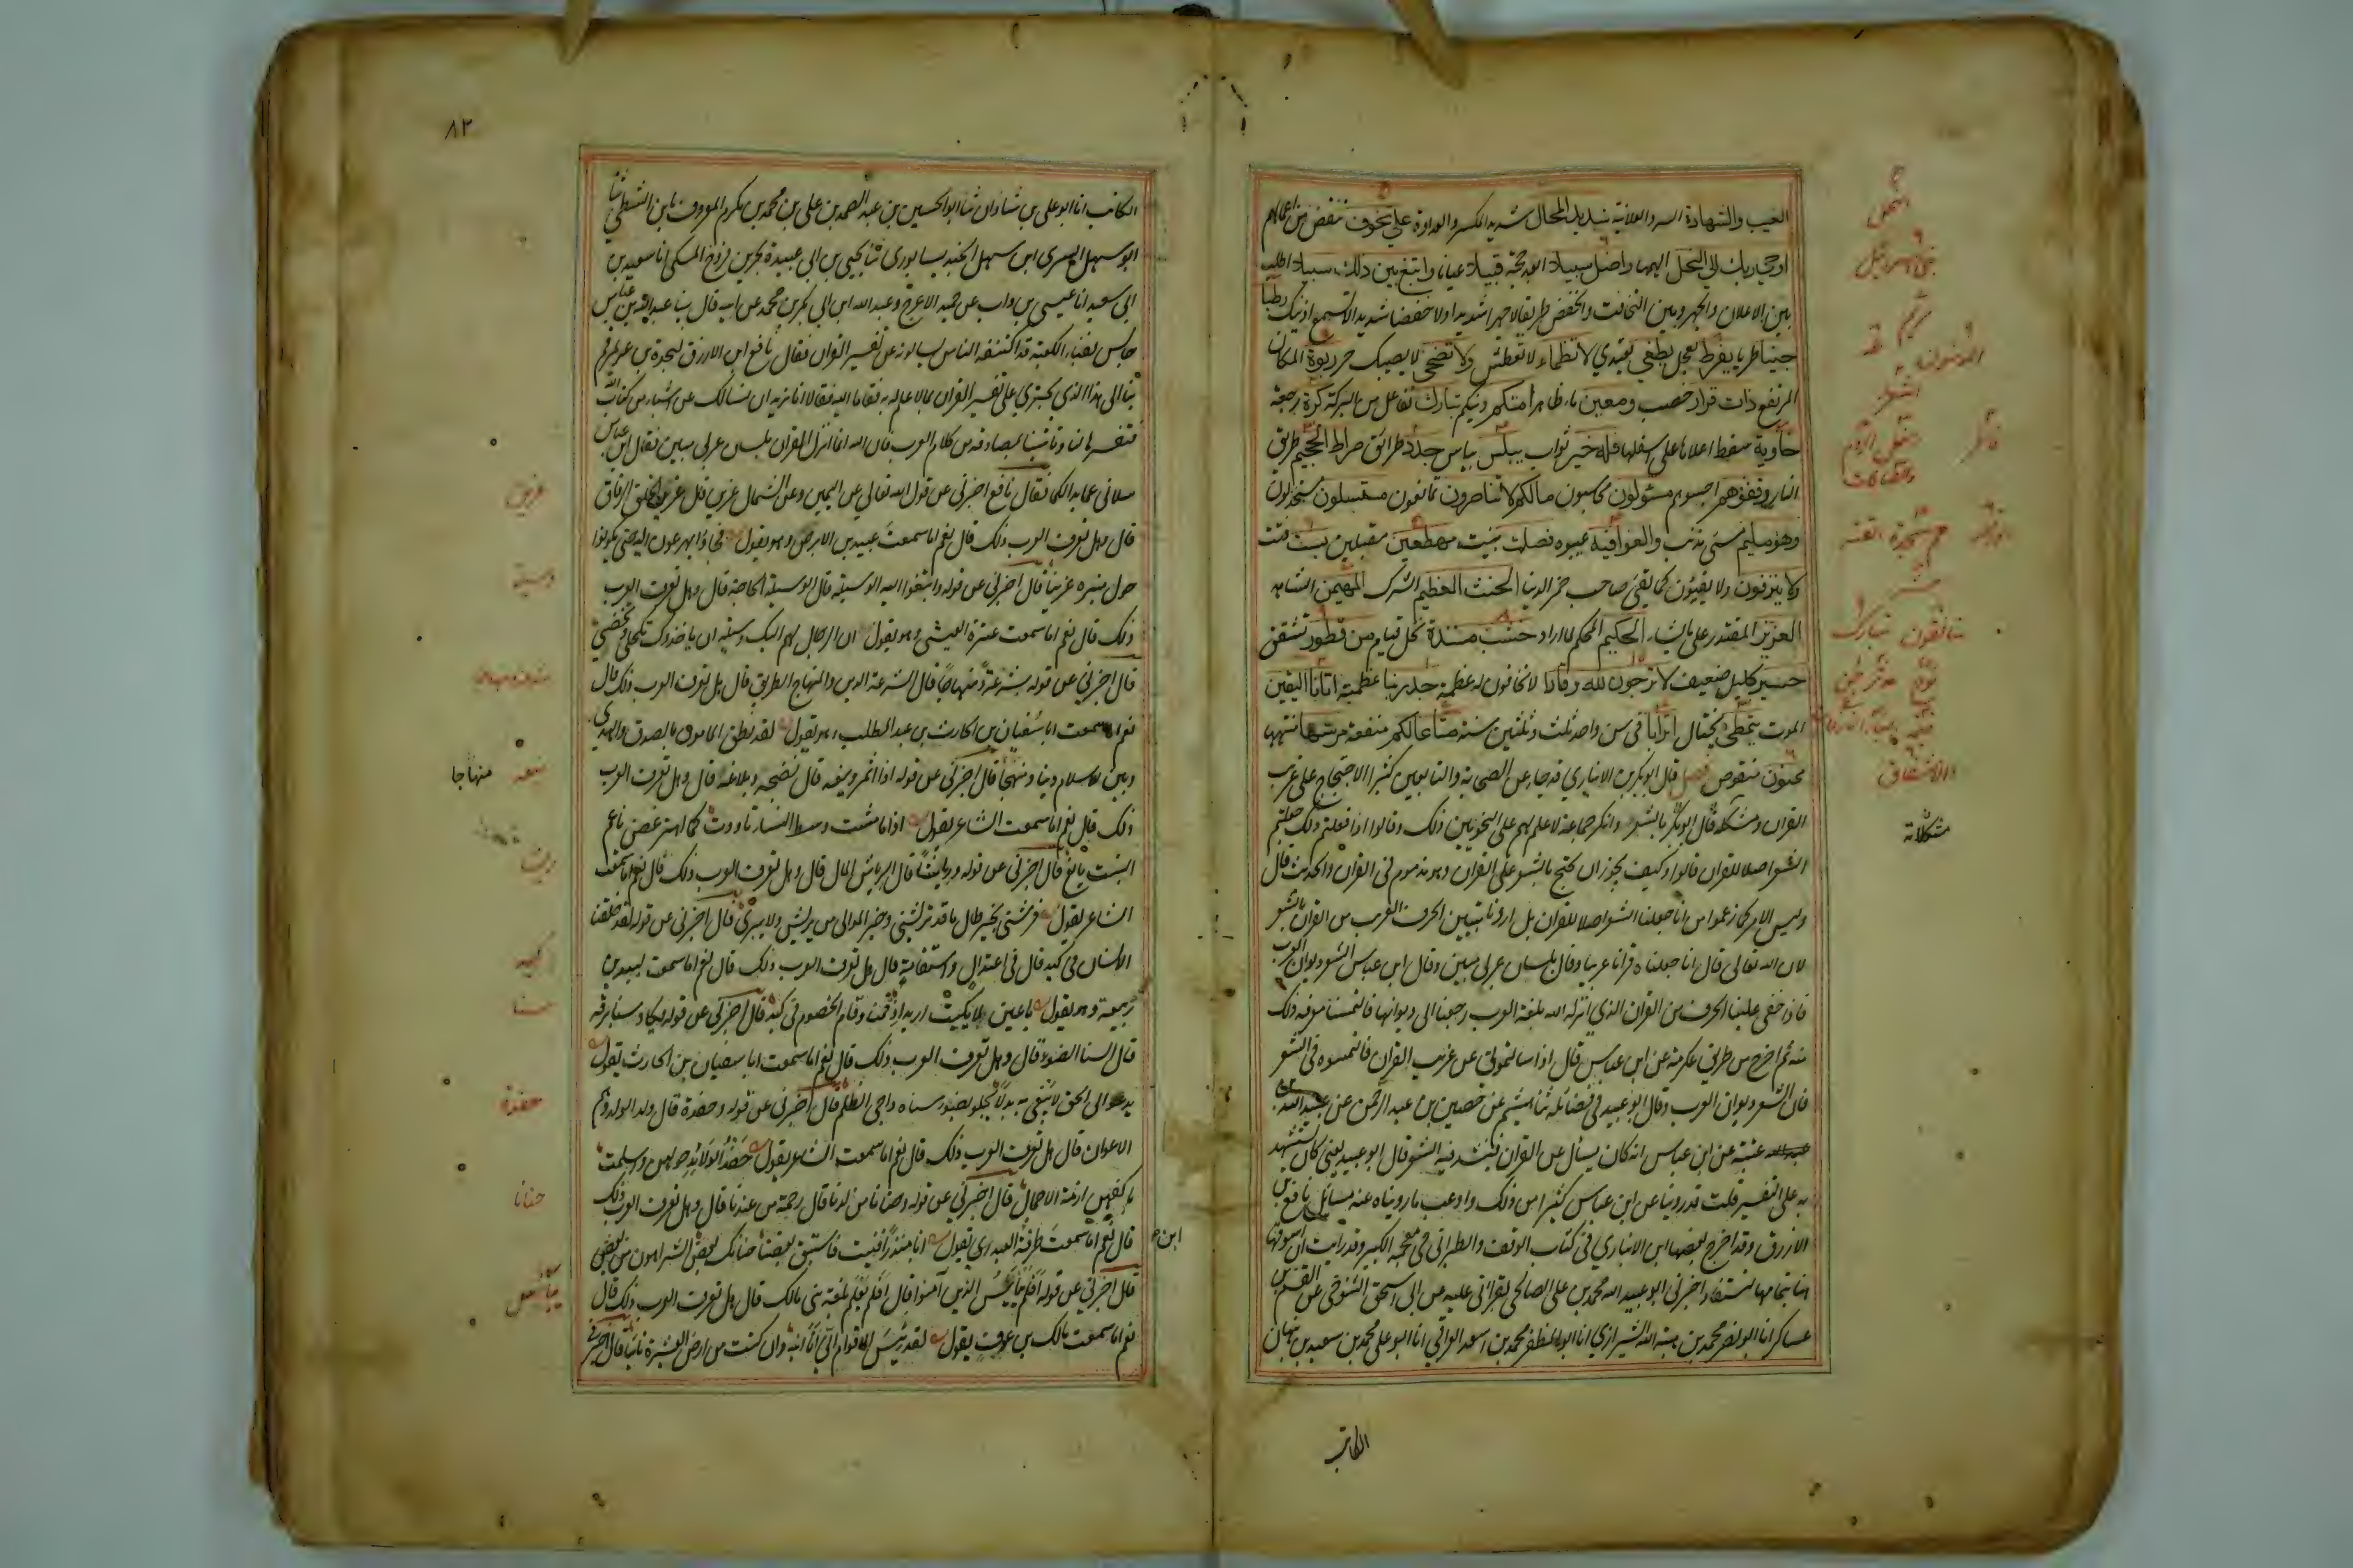 الغيب والشهادة السر والعلانية شديد المحال شديد المكر والعداوة على تخوف تنقص من اعمالهم
اوحى ربك الى النحل الهمها واضل سبيلا ابعد حجة قبيلا عيانا وابتغ بين ذلك سبيلا اطلب
بين الاعلان والجهر وبين التخافت والخفض طريقا لا جهرا شديدا ولا خفضا شديدا لا تسمع اذنيك رطبا
جنيا طريا يفرط يعجل يطغى يعتدي لا تظماء لا تعطش ولا تضحى لا يصيبك حر ربوة المكان
المرتفع ذات قرار خصب ومعين ماء ظاهر امتكم دينكم تبارك تفاعل من البركة كرة رجعة
خاوية سقط اعلاها على اسفلها فله خير ثواب يبلس ييأس جدد طرائق صراط الجحيم طريق
النار وقفوهم احبسوهم مسئولون محاسبون مالكم لا تناصرون تمانعون مستسلمون مستنجدون
وهو مليم مسئ مذنب والغوا فيه عيبوه فصلت بينت مهطعين مقبلين بست فتت
ولا ينزفون ولا يقيئون كما يقئ صاحب خمر الدنيا الحنث العظيم الشرك المهيمن الشاهد
العزيز المقتدر على ما يشاء الحكيم المحكم لما اراد خشب مسندة نخل قيام من فطور تشقق
حسير كليل ضعيف لا ترجون لله وقارا لا تخافون له عظمة جد ربنا عظمته اتانا اليقين
الموت يتمطى يختال اترابا في سن واحد ثلث وثلثين سنة متاعا لكم منفعة مرسها منتهاها
ممنون منقوص فصل قال ابو بكر بن الانباري قد جاء عن الصحابة والتابعين كثيرا الاحتجاج على غريب
القران ومشكله قال ابو بكر بالشعر وانكر جماعة لا علم لهم على النحويين ذلك وقالوا اذا فعلتم ذلك جعلتم
الشعر اصلا للقران قالوا وكيف يجوز ان يحتج بالشعر على القران وهو مذموم في القران والحديث قال
وليس الامر كما زعموا من انا جعلنا الشعر اصلا للقران بل اردنا تبيين الحرف الغريب من القران بالشعر
لان الله تعالى قال انا جعلناه قرانا عربيا وقال بلسان عربي مبين وقال ابن عباس الشعر ديوان العرب
فاذا خفى علينا الحرف من القران الذي انزله الله بلغة العرب رجعنا الى ديوانها فالتمسنا معرفة ذلك
منه ثم اخرج من طريق عكرمة عن ابن عباس قال اذا سالتموني عن غريب القران فالتمسوه في الشعر
فان الشعر ديوان العرب وقال ابو عبيد في فضائله ثنا هشيم عن حصين بن عبد الرحمن عن عبد الله بن
عتبة عن ابن عباس انه كان يسأل عن القران فينشد فيه الشعر قال ابو عبيد يعني كان يستشهد
به على التفسير قلت قد روينا عن ابن عباس كثيرا من ذلك واوعب ما رويناه عنه مسائل نافع بن
الازرق وقد اخرج بعضها ابن الانباري في كتاب الوقف والطبراني في معجمه الكبير وقد رايت ان اسوقها
هنا بتمامها لتستفاد اخبرني ابو عبد الله محمد بن علي الصالحي بقراءتي عليه عن ابي اسحق التنوخي عن القسم بن
عساكر انا ابو نصر محمد بن هبة الله الشيرازي انا ابو المظفر محمد بن اسعد العراقي انا ابو علي محمد بن سعيد بن نبهان
النحل
بنى اسرائيل
مريم
طه
المؤمنون
الشعراء
فاطر
تبارك
نوح
مشكلاته
الكاتب
٨٢
الكاتب انا ابو علي بن شاذان ثنا ابو الحسين بن عبد الصمد بن علي بن محمد بن مكرم المعروف بابن الطستي ثنا
ابو سهل السري ابن سهل الجنديسابوري ثنا يحيى بن ابي عبيدة بحر بن فروخ المكي انا سعيد بن
ابي سعيد انا عيسى بن داب عن حميد الاعرج وعبد الله ابن ابي بكر بن محمد عن ابيه قال بينا عبد الله بن عباس
جالس بفناء الكعبة قد اكتنفه الناس يسالونه عن تفسير القران فقال نافع ابن الازرق لنجدة بن عويمر قم
بنا الى هذا الذي يجترئ على تفسير القران بما لا علم له به فقاما اليه فقالا انا نريد ان نسالك عن اشياء من كتاب الله
فتفسرها لنا وتاتينا بمصادقه من كلام العرب فان الله انما انزل القران بلسان عربي مبين فقال ابن عباس
سلاني عما بدا لكما فقال نافع اخبرني عن قول الله تعالى عن اليمين وعن الشمال عزين قال عزين حلق الرفاق
قال وهل تعرف العرب ذلك قال نعم اما سمعت عبيد بن الابرص وهو يقول فجاؤا يهرعون اليه حتى يكونوا
حول منبره عزينا قال اخبرني عن قوله وابتغوا اليه الوسيلة قال الوسيلة الحاجة قال وهل تعرف العرب
ذلك قال نعم اما سمعت عنترة العبسي وهو يقول ان الرجال لهم اليك وسيلة ان ياخذوك تكحلي وتخضبي
قال اخبرني عن قوله شرعة ومنهاجا قال الشرعة الدين والمنهاج الطريق قال هل تعرف العرب ذلك قال
نعم اما سمعت ابا سفيان بن الحارث بن عبد المطلب وهو يقول لقد نطق المامون بالصدق والهدى
وبين للاسلام دينا ومنهجا قال اخبرني عن قوله اذا اثمر وينعه قال نضجه وبلاغه قال وهل تعرف العرب
ذلك قال نعم اما سمعت الشاعر يقول اذا ما مشت وسط النساء تاودت كما اهتز غصن ناعم
النبت يانع قال اخبرني عن قوله وريشا قال الرياش المال قال وهل تعرف العرب ذلك قال نعم اما سمعت
الشاعر يقول فرشني بخير طال ما قد بريتني وخير الموالي من يريش ولا يبري قال اخبرني عن قوله لقد خلقنا
الانسان في كبد قال في اعتدال واستقامة قال هل تعرف العرب ذلك قال نعم اما سمعت لبيد بن
ربيعة وهو يقول يا عين هلا بكيت اربد اذ قمنا وقام الخصوم في كبد قال اخبرني عن قوله يكاد سنا برقه
قال السنا الضوء قال وهل تعرف العرب ذلك قال نعم اما سمعت ابا سفيان بن الحارث يقول
يدعو الى الحق لا يبغي به بدلا يجلو بضوء سناه داجي الظلم قال اخبرني عن قوله وحفدة قال ولد الولد وهم
الاعوان قال هل تعرف العرب ذلك قال نعم اما سمعت الشاعر يقول حفد الولائد حولهن واسلمت
باكفهن ازمة الاحمال قال اخبرني عن قوله وحنانا من لدنا قال رحمة من عندنا قال وهل تعرف العرب ذلك
قال نعم اما سمعت طرفة العبدي يقول ابا منذر افنيت فاستبق بعضنا حنانيك بعض الشر اهون من بعض
قال اخبرني عن قوله افلم ييأس الذين آمنوا قال افلم يعلم بلغة بني مالك قال هل تعرف العرب ذلك قال
نعم اما سمعت مالك بن عوف يقول لقد يئس الاقوام اني انا ابنه وان كنت من ارض العشيرة نائيا قال اخبرني
عزين
وسيلة
منهاجا
ريشا
كبد
سنا
حفدة
حنانا
ابن